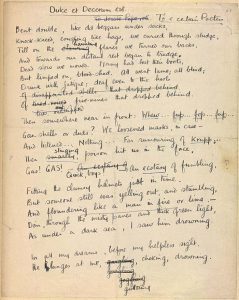 Dulce et Decorum est.
To a certain Poetess
Bent double, like old beggars under sacks,
Knock-kneed, coughing like hags, we cursed through sludge,
Till on the haunting flares we turned our backs,
And towards our distant rest began to trudge,
Dead slow we moved. Many had lost their boots,
But limped on, blood-shod. All went lame; all blind;
Drunk with fatigue; deaf even to the hoots
Of disappointed shells that dropped behind.
Of five-nines that dropped behind.
Then somewhere near in front: Whew... fup... fop... fup...
Gas-shells or duds? We loosened masks, in case—
And listened... Nothing... Far rumouring of Krupp;...
stinging
Then poison hit us in the face,
Gas! GAS! Quick, boys! — An ecstasy of fumbling,
Fitting the clumsy helmets just in time.
But someone still was yelling out, and stumbling,
And floundering like a man in fire or lime.—
Dim, through the misty panes and thick green light,
As under a dark sea, I saw him drowning.
In all my dreams, before my helpless sight,
He plunges at me, choking, drowning.